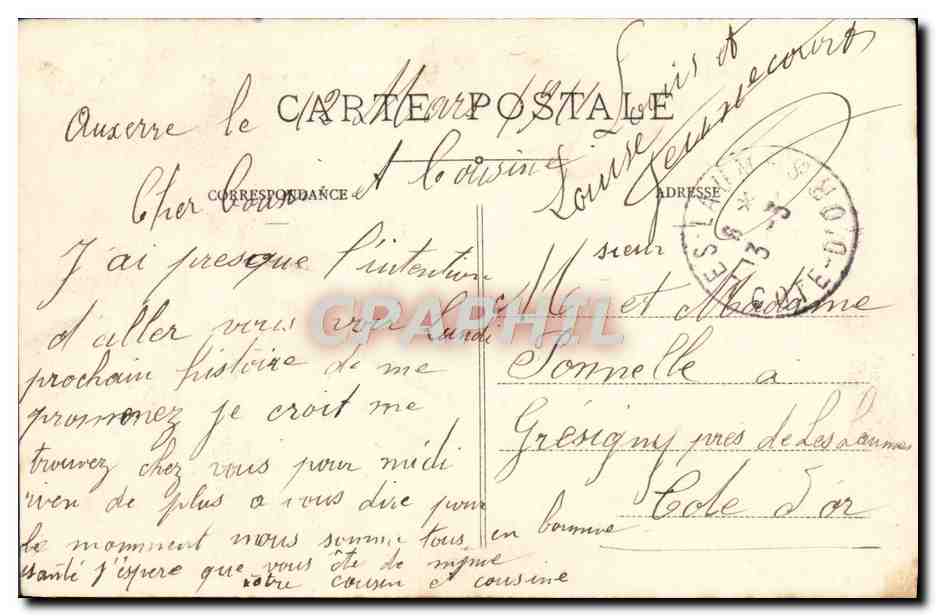 CARTE POSTALE
Auxerre le 12 Mars 1911
CORRESPONDANCE
Cher Cousin et Cousine
J'ai presque l'intention
d'aller vous voir Lundi
prochain histoire de me
promenez je croit me
trouvez chez vous pour midi
rien de plus a vous dire pour
le momment nous somme tous en bounne
santé j'éspere que vous ête de même
votre cousin et cousine
Louis et
Louise Jeunnecourt
ADRESSE
Msieur et Madame
Sonnelle a
Grésigny près de Les Laumes
Cote d'or
LES LAUMES
CÔTE-D'OR
13 - 3
CPARPHIL